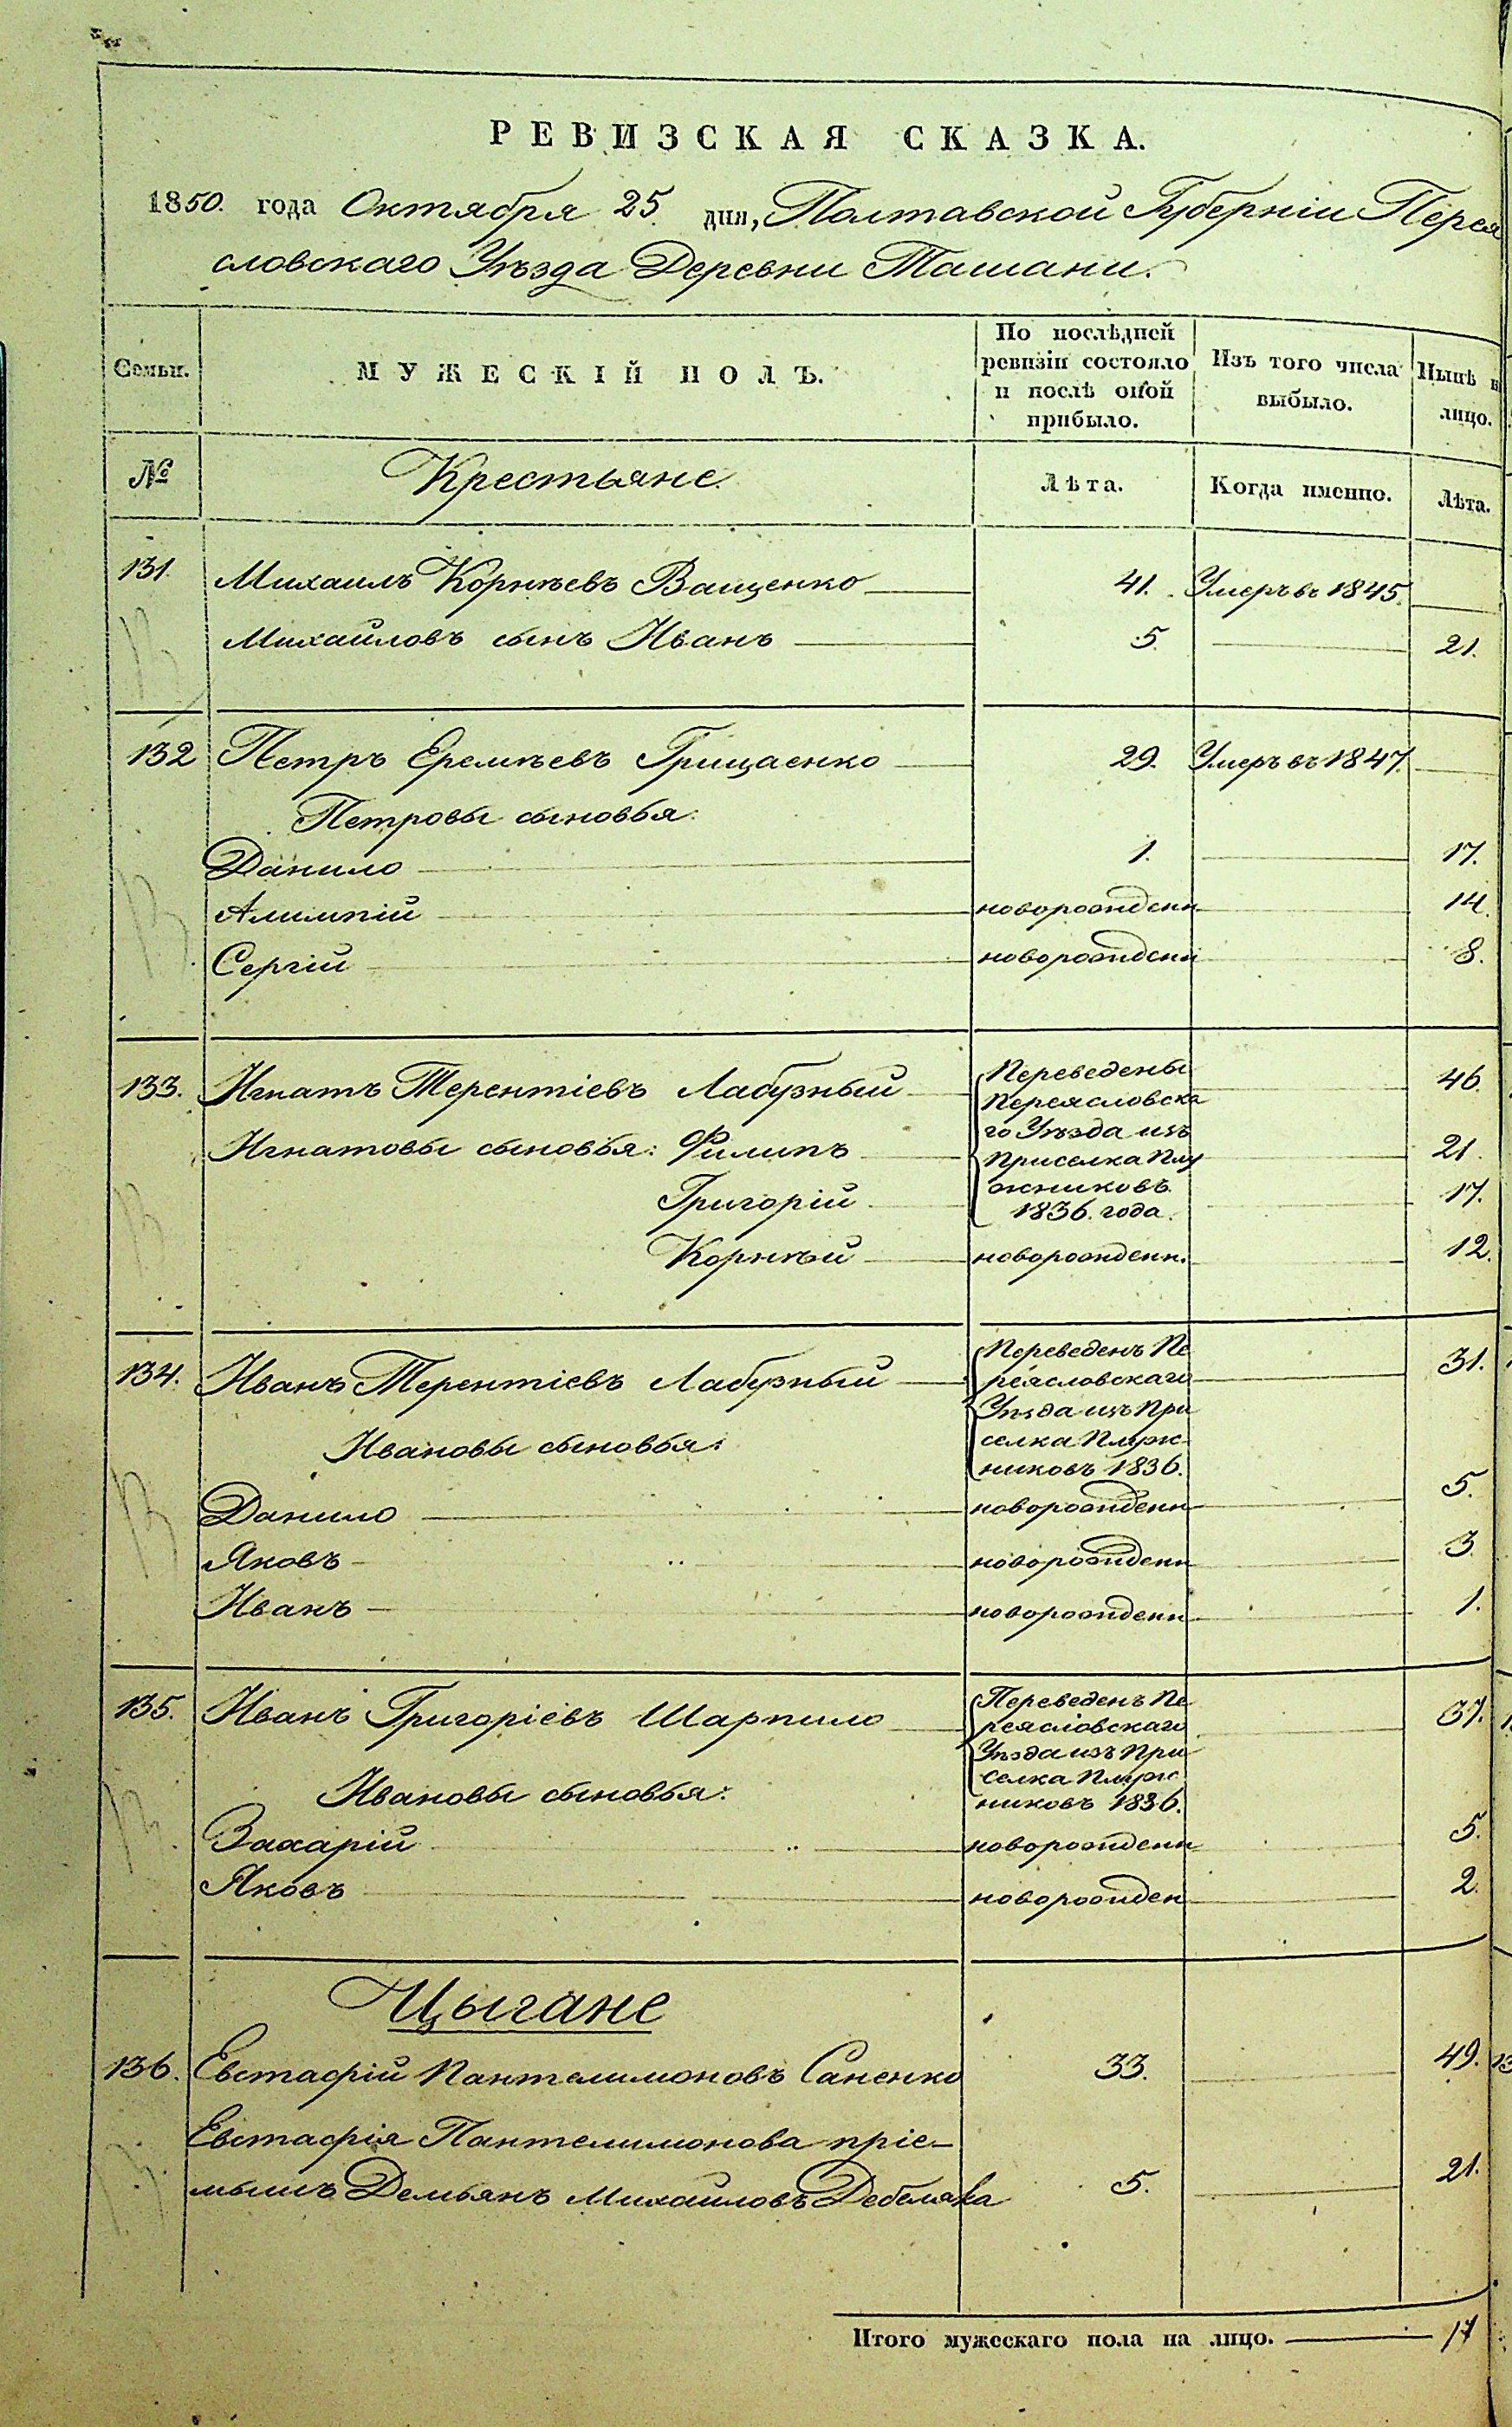 РЕВИЗСКАЯ СКАЗКА.
1850. года Октября 25. дня, Полтавской Губерніи Перея
словскаго Уѣзда Деревни Ташани.
Семьи.
МУЖЕСКІЙ ПОЛЪ.
По послѣдней
ревизіи состояло
и послѣ оной
прибыло.
Изъ того числа
выбыло.
Нынѣ н
лицо.
№ Крестьяне. Лѣта. Когда именно. Лѣта.
131. Михаилъ Корнѣевъ Ващенко 41. Умеръ въ 1845.
Михайловъ сынъ Иванъ 5. 21.
132 Петръ Еремѣевъ Грицаенко 29. Умеръ въ 1847.
Петровы сыновья:
Данило 1. 17.
Алимпій новорожденн 14.
Сергій новорождени 8.
133. Игнатъ Терентіевъ Лабузный 46.
Переведены
Переясловска
го Уѣзда изъ
Приселка Плу
жниковъ
1836. года.
Игнатовы сыновья: Филипъ 21.
Григорій 17.
Корнѣй новорожденн. 12.
134. Иванъ Терентіевъ Лабузный 31.
Переведенъ Пе
реясловскаго
Уѣзда изъ При
селка Плуж
никовъ 1836.
Ивановы сыновья:
Данило новорожденн 5.
Яковъ новорожденн 3.
Иванъ новорожденн 1.
135. Иванъ Григоріевъ Шарпило 37.
Переведенъ Пе
реясловскаго
Уѣзда изъ При
селка Плуж
никовъ 1836.
Ивановы сыновья:
Захарій новорожденн 5.
Яковъ новорожден 2.
Цыгане
136. Евстафій Пантелимоновъ Саненко 33. 49.
Евстафія Пантелимонова пріе-
мышъ Демьянъ Михайловъ Дебеляка 5. 21.
Итого мужескаго пола на лицо. 17